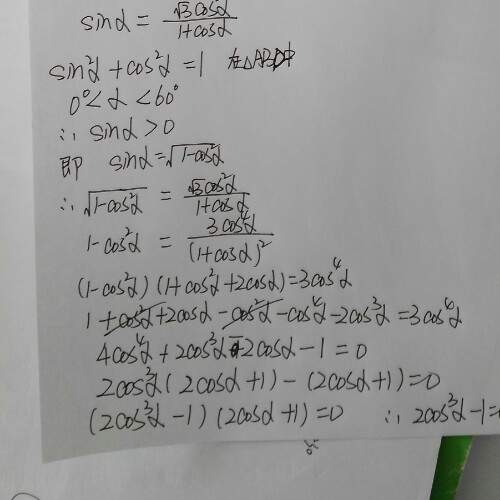 sinα = √3cos²α / (1+cosα)
sin²α + cos²α = 1 在△ABD中
0°<α<60°
∴ sinα>0
即 sinα=√(1-cos²α)
∴ √(1-cos²α) = √3cos²α / (1+cosα)
1-cos²α = 3cos⁴α / (1+cosα)²
(1-cos²α)(1+cos²α+2cosα)=3cos⁴α
1+cos²α+2cosα-cos²α-cos⁴α-2cos³α=3cos⁴α
4cos⁴α+2cos³α-2cosα-1=0
2cos³α(2cosα+1)-(2cosα+1)=0
(2cos³α-1)(2cosα+1)=0 ∴ 2cos³α-1=